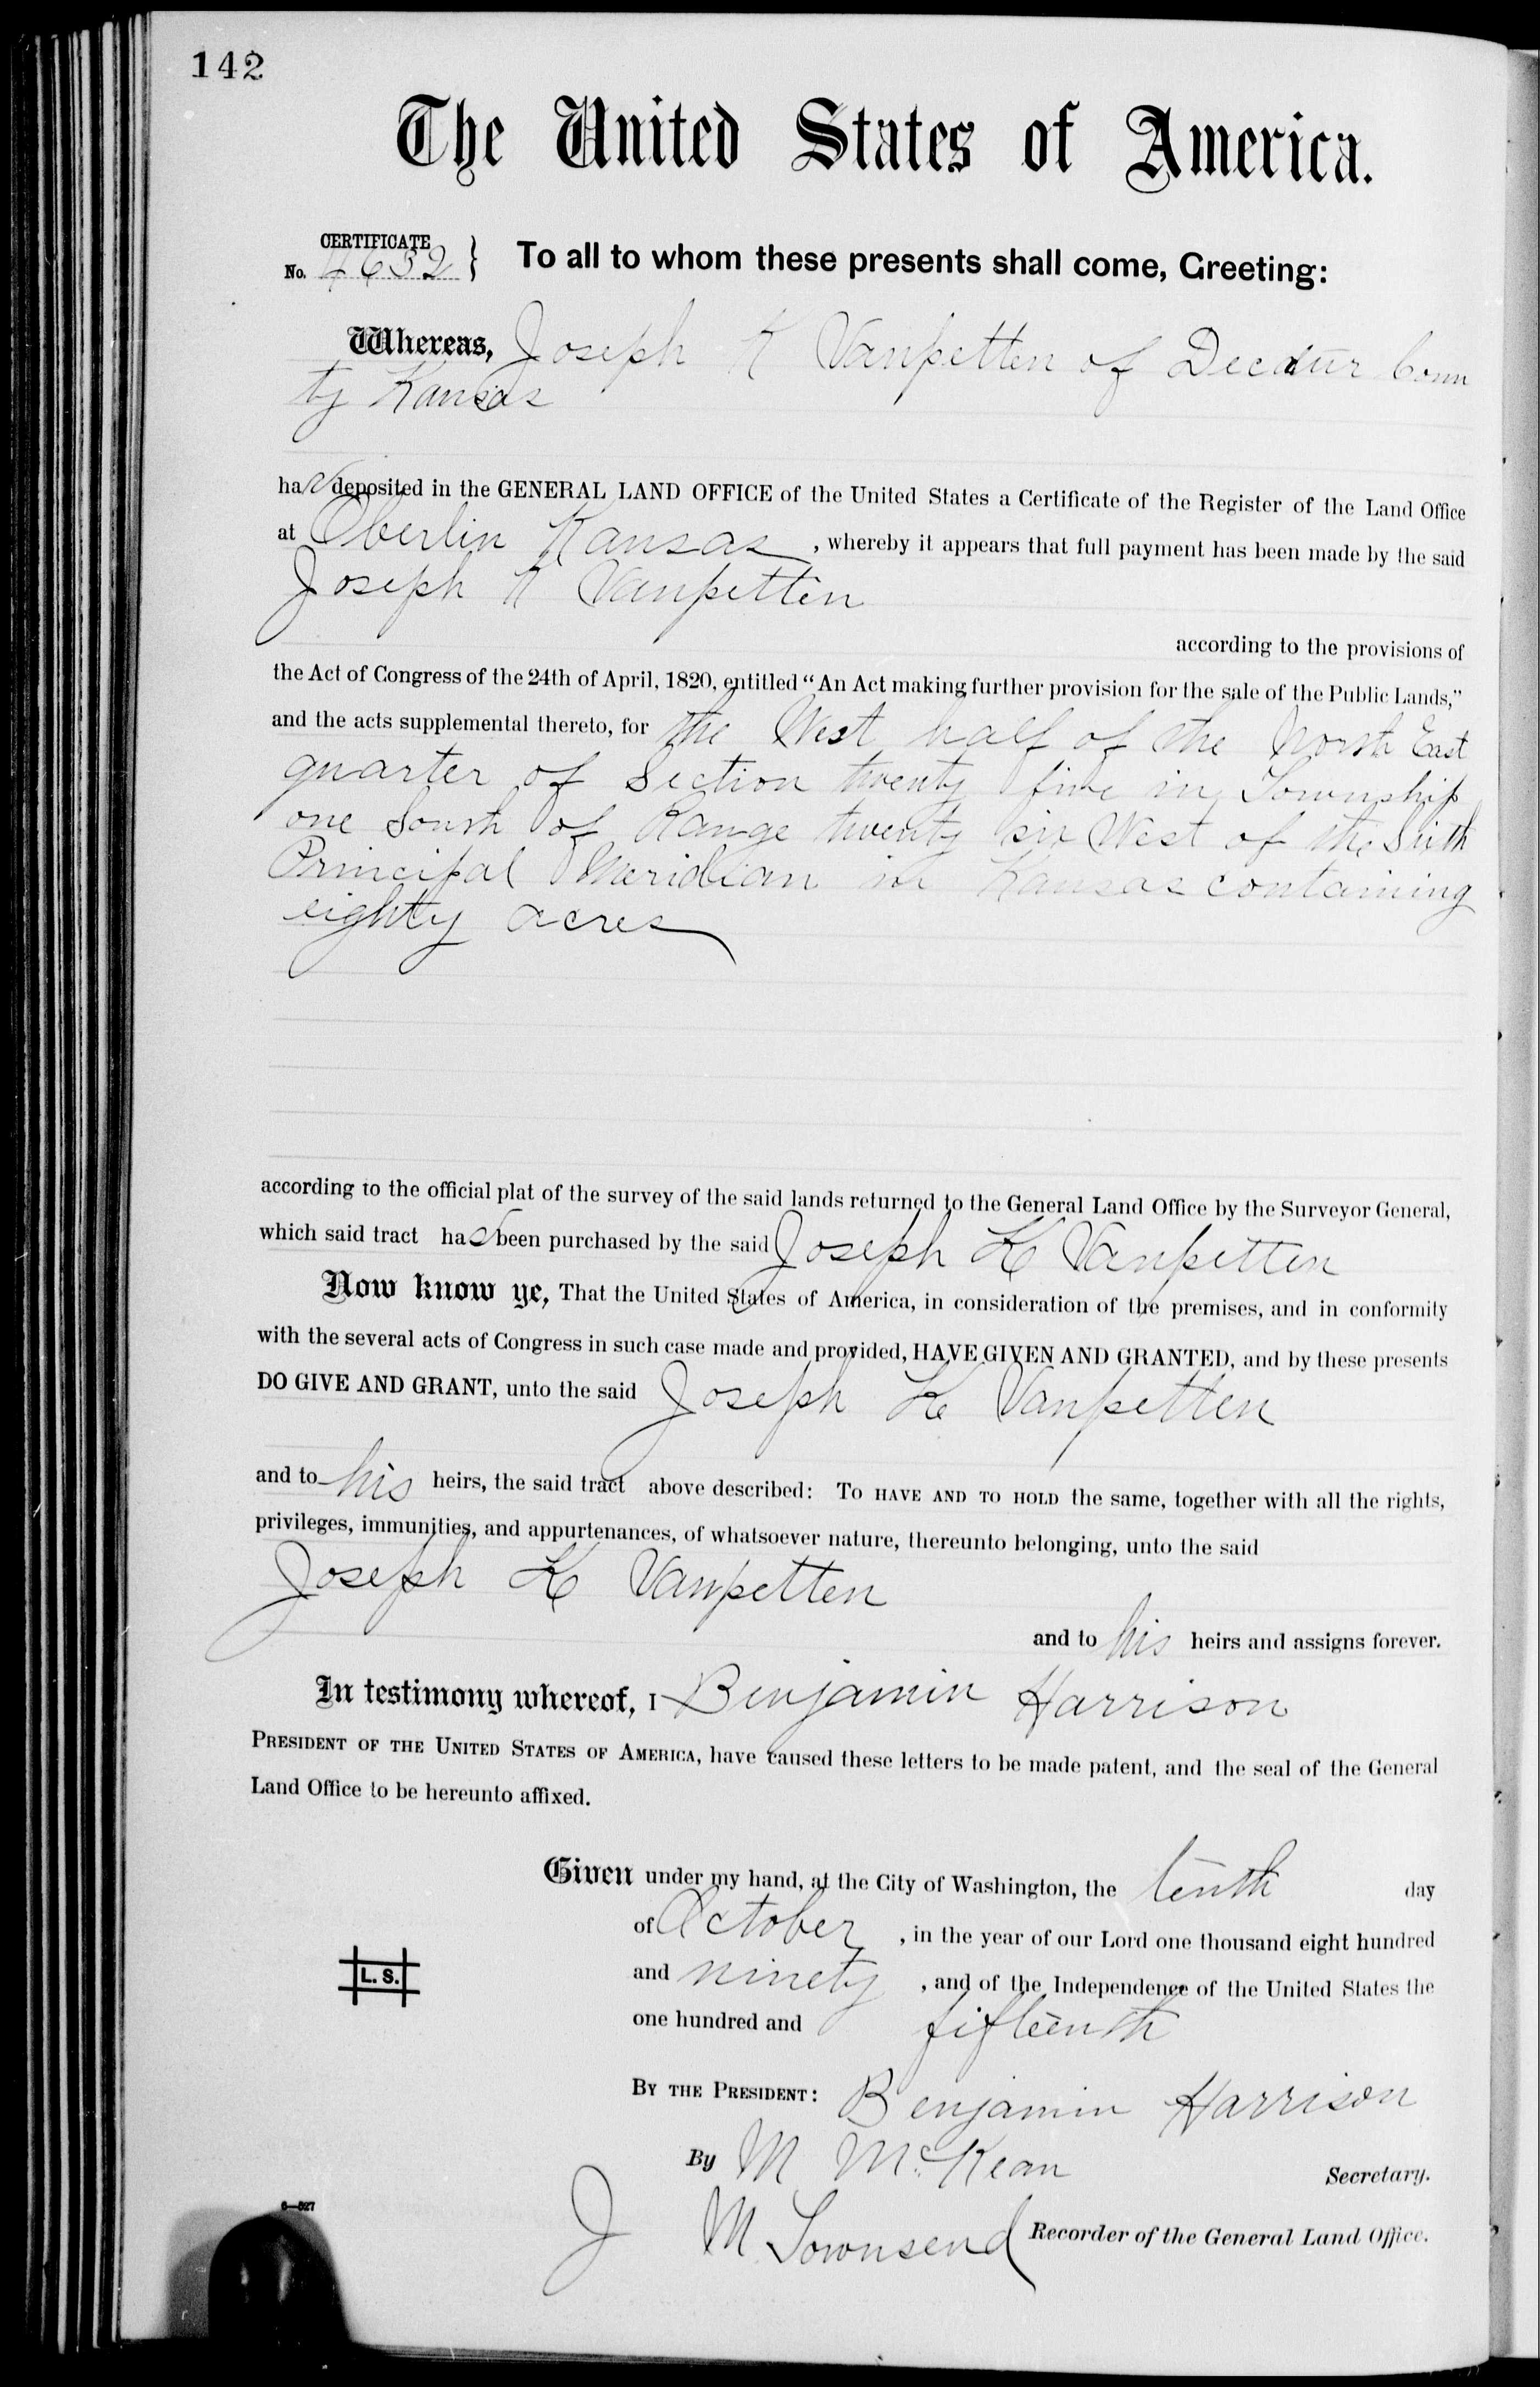 142
The United States of America.
CERTIFICATE
No. 4632 } To all to whom these presents shall come, Greeting:
Whereas, Joseph K Vanpetten of Decatur Coun
ty Kansas
has deposited in the GENERAL LAND OFFICE of the United States a Certificate of the Register of the Land Office
at Oberlin Kansas, whereby it appears that full payment has been made by the said
Joseph K Vanpetten
according to the provisions of
the Act of Congress of the 24th of April, 1820, entitled “An Act making further provision for the sale of the Public Lands,”
and the acts supplemental thereto, for the West half of the North East
quarter of Section twenty five in Township
one South of Range twenty six West of the Sixth
Principal Meridian in Kansas containing
eighty acres
according to the official plat of the survey of the said lands returned to the General Land Office by the Surveyor General,
which said tract has been purchased by the said Joseph K Vanpetten
Now know ye, That the United States of America, in consideration of the premises, and in conformity
with the several acts of Congress in such case made and provided, HAVE GIVEN AND GRANTED, and by these presents
DO GIVE AND GRANT, unto the said Joseph K Vanpetten
and to his heirs, the said tract above described: TO HAVE AND TO HOLD the same, together with all the rights,
privileges, immunities, and appurtenances, of whatsoever nature, thereunto belonging, unto the said
Joseph K Vanpetten
and to his heirs and assigns forever.
In testimony whereof, I Benjamin Harrison
PRESIDENT OF THE UNITED STATES OF AMERICA, have caused these letters to be made patent, and the seal of the General
Land Office to be hereunto affixed.
Given under my hand, at the City of Washington, the tenth day
of October, in the year of our Lord one thousand eight hundred
and ninety, and of the Independence of the United States the
one hundred and fifteenth
L. S.
BY THE PRESIDENT: Benjamin Harrison
By M McKean Secretary.
J M Townsend Recorder of the General Land Office.
6—527